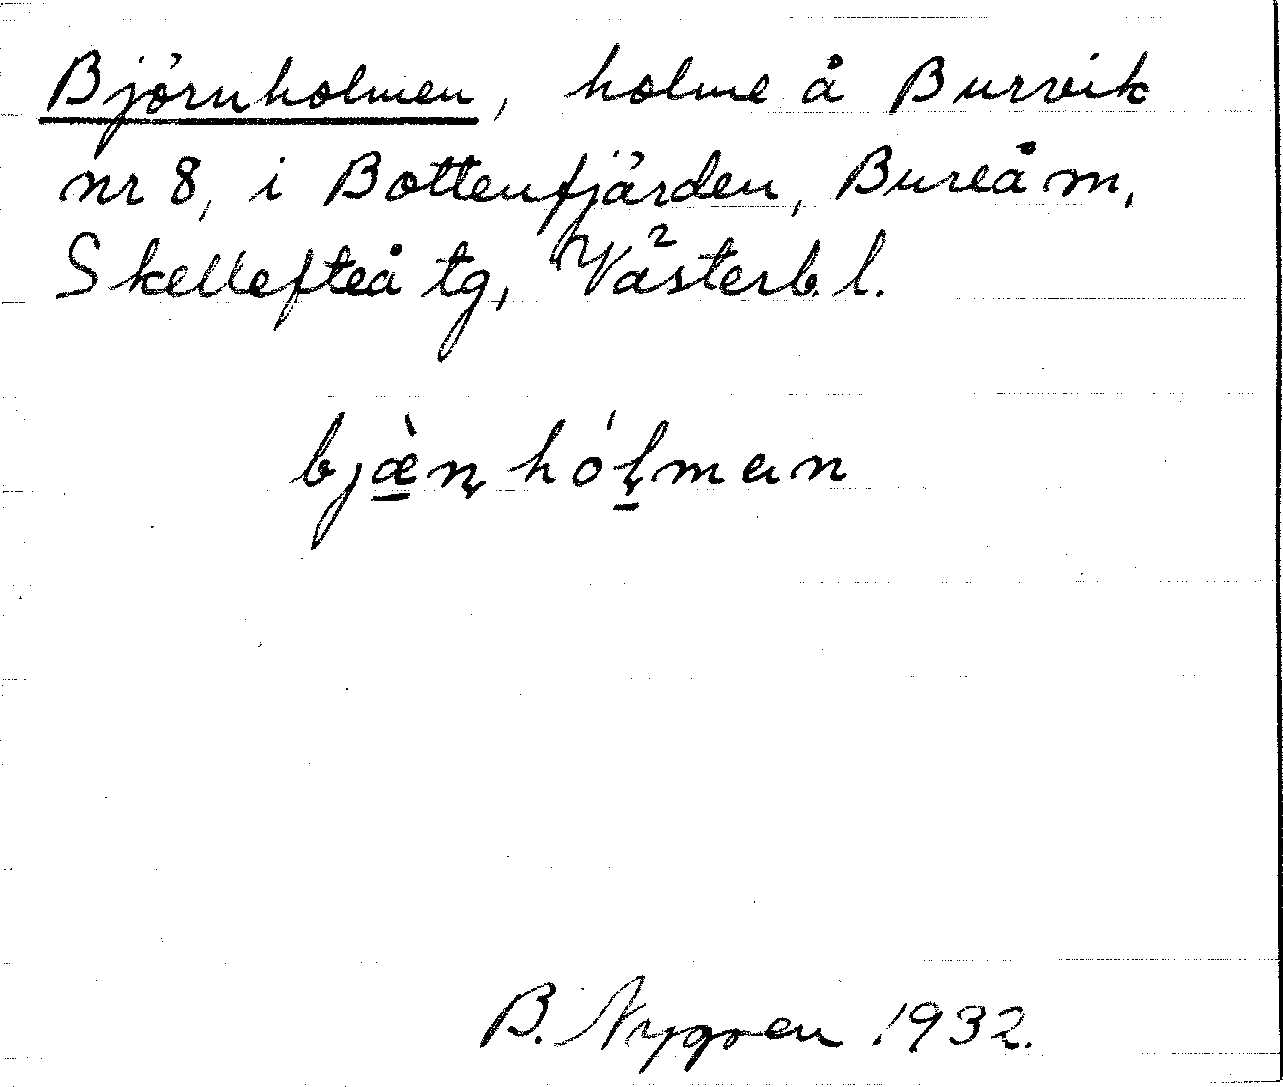 Björnholmen, holme å Burvik
nr 8, i Bottenfjärden, Bureå m,
Skellefteå tg, Västerb. l.
bjæ̱̀ṇhóḷ̱man
B. Nygren 1932.